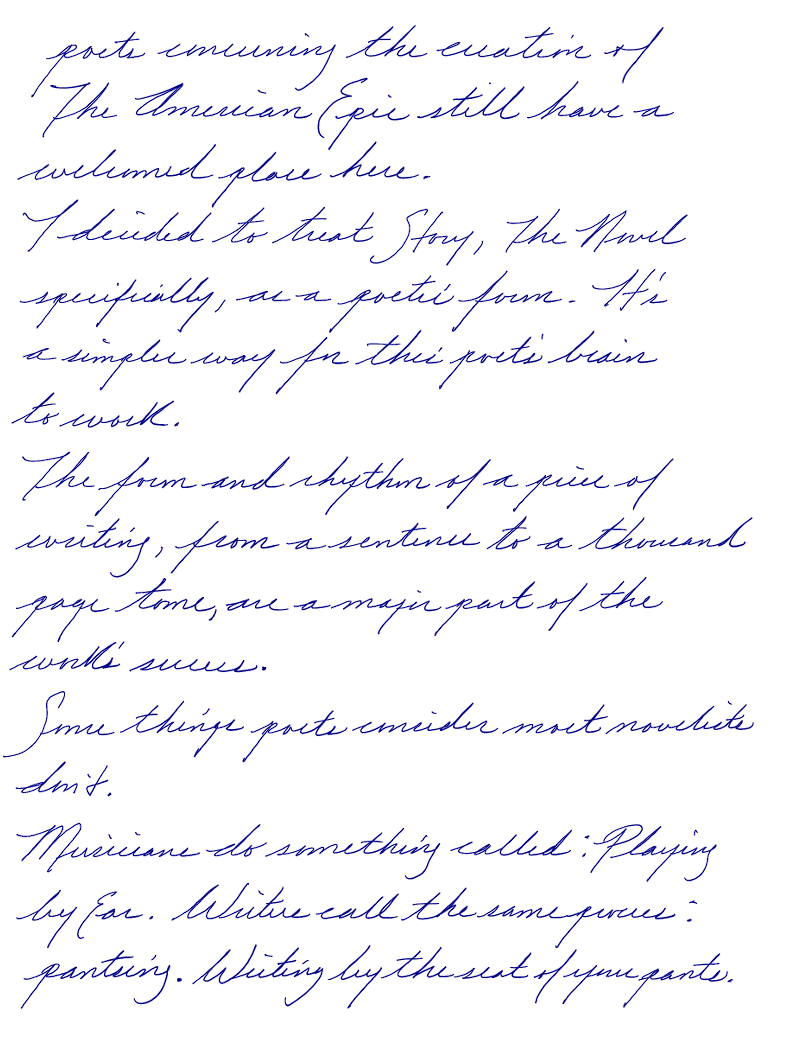 poets concerning the creation of
The American Epic still have a
welcomed place here.
I decided to treat Story, The Novel
specifically, as a poetic form. It's
a simpler way for this poet's brain
to work.
The form and rhythm of a piece of
writing, from a sentence to a thousand
page tome, are a major part of the
work's success.
Some things poets consider most novelists
don't.
Musicians do something called: Playing
by Ear. Writers call the same process:
pantsing. Writing by the seat of your pants.